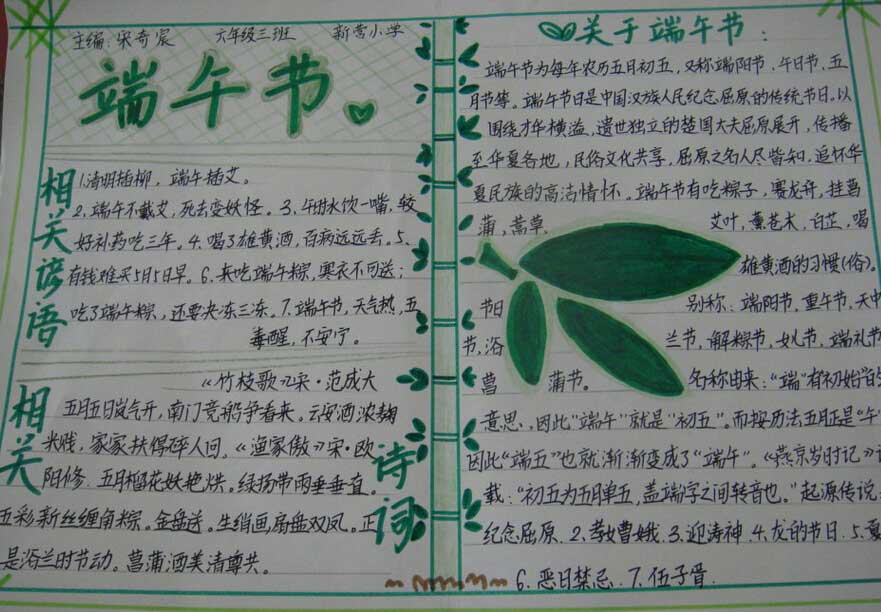 主编：宋奇宸 六年级三班 新营小学
端午节
相关谚语
1.清明插柳，端午插艾。
2.端午不戴艾，死去变妖怪。3.午时水饮一嘴，较
好补药吃三年。4.喝了雄黄酒，百病远远丢。5.
有钱难买5月5日早。6.未吃端午粽，寒衣不可送；
吃了端午粽，还要冻三冻。7.端午节，天气热，五
毒醒，不安宁。
相关诗词
《竹枝歌》宋·范成大
五月五日岚气开，南门竞船争看来。云安酒浓麴
米贱，家家扶得碎人回。《渔家傲》宋·欧
阳修．五月榴花妖艳烘。绿杨带雨垂垂直。
五彩新丝缠角粽。金盘送。生绡画扇盘双凤。正
是浴兰时节动。菖蒲酒美清尊共。
关于端午节：
端午节为每年农历五月初五，又称端阳节，午日节，五
月节等。端午节日是中国汉族人民纪念屈原的传统节日。以
围绕才华横溢，遗世独立的楚国大夫屈原展开，传播
至华夏各地，民俗文化共享，屈原之名人尽皆知，追怀华
夏民族的高洁情怀。端午节有吃粽子，赛龙舟，挂菖
蒲，蒿草、艾叶，薰苍术，白芷，喝
雄黄酒的习惯(俗)。
节日别称：端阳节，重午节，天中
节，浴兰节，解粽节，女儿节，端礼节
菖蒲节。名称由来：“端”有“初始”的
意思，因此“端午”就是“初五”。而按历法五月正是“午”
因此“端五”也就渐渐变成了“端午”。《燕京岁时记》
载：“初五为五月单五，盖端字之间转音也。”起源传说：
纪念屈原．2.孝女曹娥．3.迎涛神．4.龙的节日．5.夏
6.恶日禁忌．7.伍子胥．